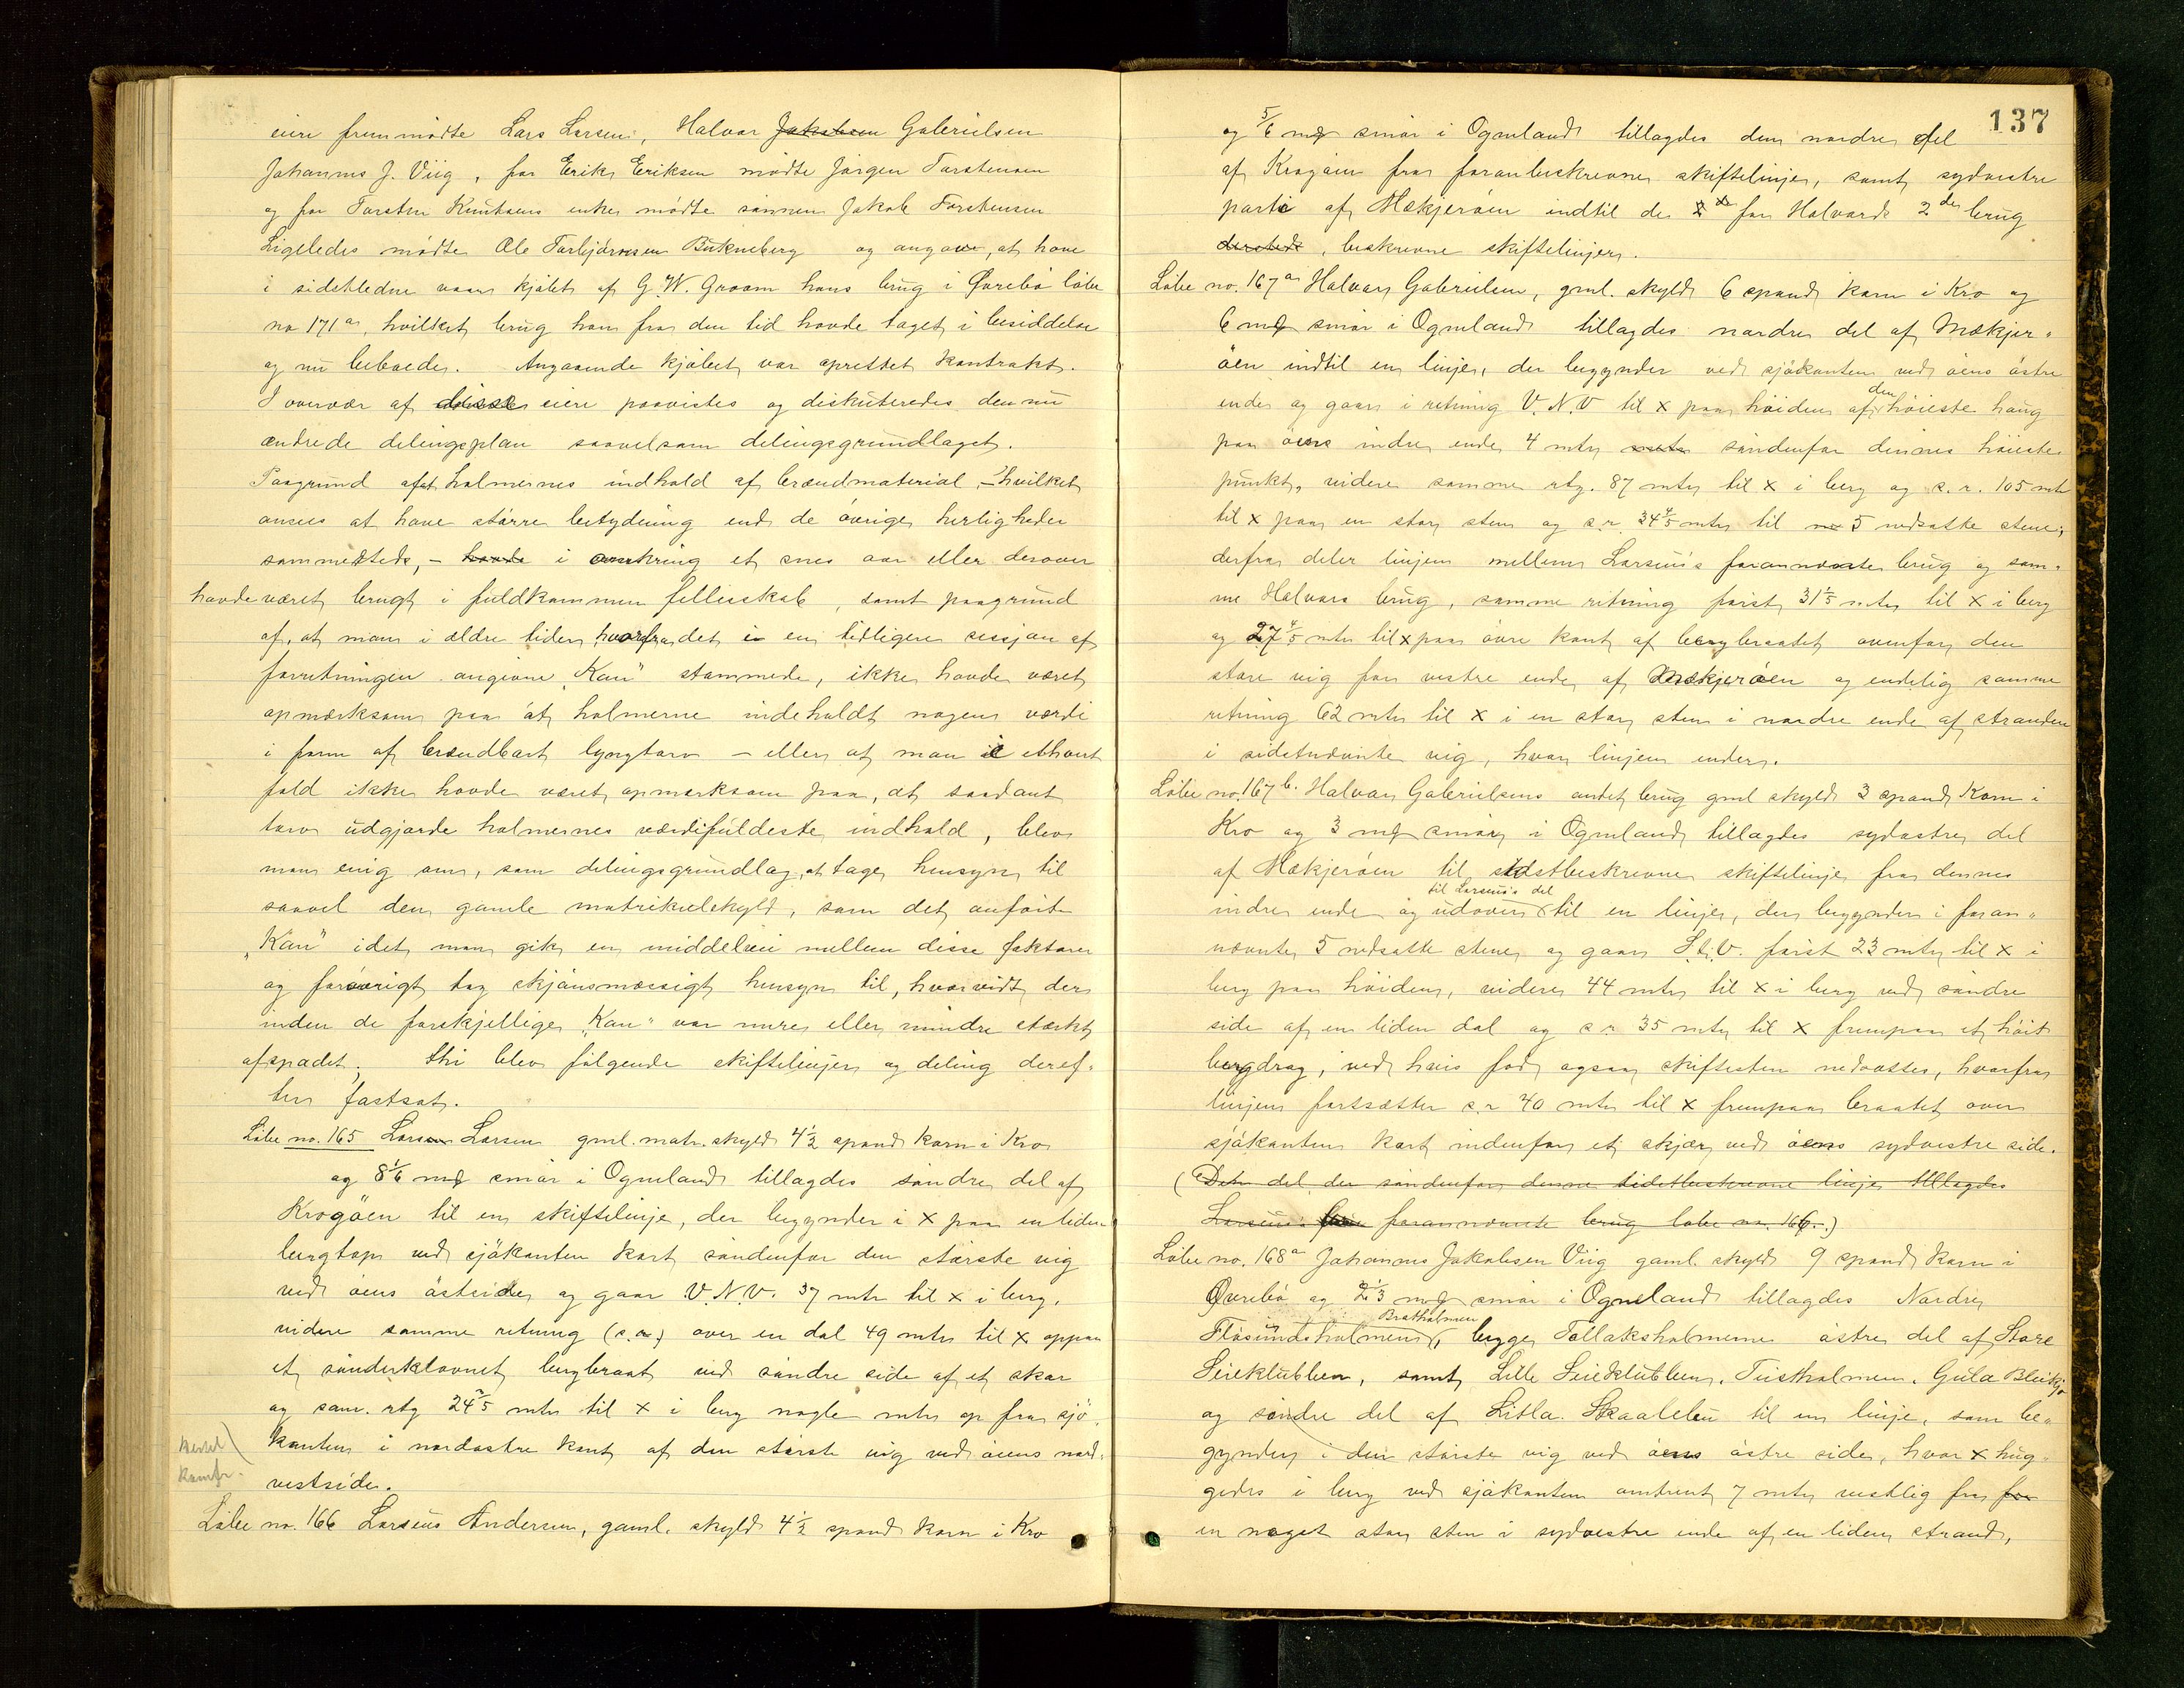 eiere fremmödte Lars Larsen, Halvor Jakobsen Gabrielsen
Johannes J. Viig, for Erik Eriksen mödte Jörgen Torstensen
og for Torsten Knutsens enke mödte sönnen Jakob Torstensen
Ligeledes mödte Ole Torbjörnsen Bukneberg og angave, at have
i sidstledne vaar kjöbt af G. W. Groom hans brug i Övrebö löbe
no 171a, hvilket brug han fra den tid havde taget i besiddelse
og nu beboede. Angaaende kjöbet var oprettet kontrakt.
I overvær af disse eiere paavistes og diskuteredes den nu
ændrede delingsplan saavelsom delingsgrundlaget.
Paagrund af holmernes indhold af brændmaterial, - hvilket
ansees at have större betydning end de övrige herligheder
sammesteds, - havde i omkring et snes aar eller derover
havde været brugt i fuldkommen fellesskab, samt paagrund
af, at man i ældre tider, hvorfra det i en tidligere sesjon af
forretningen angivne „Kau" stammede, ikke havde været
opmærksom paa at holmerne indeholdt nogen værdi
i form af brændbart lyngtorv - eller at man i ethvert
fald ikke havde været opmærksom paa, at saadant
torv udgjorde holmernes værdifuldeste indhold, blev
man enig om, som delingsgrundlag, at tage hensyn til
saavel den gamle matrikulskyld, som det anförte
„Kau" idet man gik en middelvei mellem disse faktorer
og forövrigt tog skjönsmæssigt hensyn til, hvorvidt der
inden de forskjellige „Kau" var mere eller mindre stærkt
afspadet. Thi blev fölgende skiftelinjer og deling deref-
ter fastsat.
Löbe no. 165 Lars Larsen gml. matr. skyld 4½ spand korn i Kro
og 8 1/6 mrk smör i Ogneland tillagdes söndre del af
Krogöen til en skiftelinje, der begynder i x paa en liden
bergtop ved sjökanten kort söndenfor den störste vig
ved öens östside og gaar V.N.V. 37 mtr til x i berg,
videre samme retning (s.r.) over en dal 49 mtr til x oppaa
et sönderklovnet bergbraat ved söndre side af et skar
og sam. rtg 24 2/5 mtr til x i berg nogle mtr op fra sjö-
kanten i nordöstre kant af den störste vig ved öens nord-
vestside.
Löbe no. 166 Larseus Andersen, gaml. skyld 4½ spand korn i Kro
137
og 5/6 mrk smör i Ogneland tillagdes den nordre del
af Krogöen fra foranbeskrevne skiftelinje, samt sydvestre
parti af Mækjeröen indtil de for Halvards 2det brug
dersteds, beskrevne skiftelinjer.
Löbe no. 167a Halvor Gabrielsen, gml. skyld 6 spand korn i Kro og
6 mrk smör i Ogneland tillagdes nordre del af Mækjer-
öen indtil en linje, der begynder ved sjökanten ved öens östre
ende og gaar i retning V.N.V til x paa höiden af den höieste haug
paa öens indre ende 4 mtr söndenfor dennes höieste
punkt, videre samme rtg. 87 mtr til x i berg og s. r. 105 mtr
til x paa en stor sten og s.r. 34 4/5 mtr til 5 nedsatte stene;
derfra deler linjen mellem Larseus's forannævnte brug og sam-
me Halvors brug, samme retning först 31 1/5 mtr til x i berg
og 27 4/5 mtr til x paa övre kant af bergbraatet ovenfor den
store vig for vestre ende af Mækjeröen og endelig samme
retning 62 mtr til x i en stor sten i nordre ende af stranden
i sidstnævnte vig, hvor linjen ender.
Löbe no. 167b. Halvor Gabrielsens andet brug gml skyld 3 spand korn i
Kro og 3 mrk smör i Ogneland tillagdes sydöstre del
af Mækjeröen til sidstbeskrevne skiftelinje fra dennes
indre ende og udover til Larseus's del til en linje, der begynder i foran-
nævnte 5 nedsatte stene og gaar S.t.V. först 23 mtr til x i
berg paa höiden, videre 44 mtr til x i berg ved söndre
side af en liden dal og s r 35 mtr til x frempaa et höit
bergdrag, ved hvis fod ogsaa skiftesten nedsattes, hvorfra
linjen fortsætter s.r 40 mtr til x frempaa braatet over
sjökanten kort indenfor et skjær ved öens sydvestre side.
(Den del der söndenfor denne sidstbeskrevne linje tillagdes
Larseus's forannævnte brug löbe no. 166.)
Löbe no. 168a Johannes Jakobsen Viig gaml. skyld 9 spand korn i
Övrebö og 2 1/3 mrk smör i Ogneland tillagdes Nordre
Flösundsholmen, Bratholmen begge Tollaksholmerne östre del af Store
Seieklubben, samt Lille Seieklubben, Tuistholmen, Gula Bleikja
og söndre del af Litla Skaalebu til en linje, som be-
gynder i den störste vig ved öens östre side, hvor x hug-
gedes i berg ved sjökanten omtrent 7 mtr vestlig fra for
en noget stor sten i sydvestre ende af en liden strand,